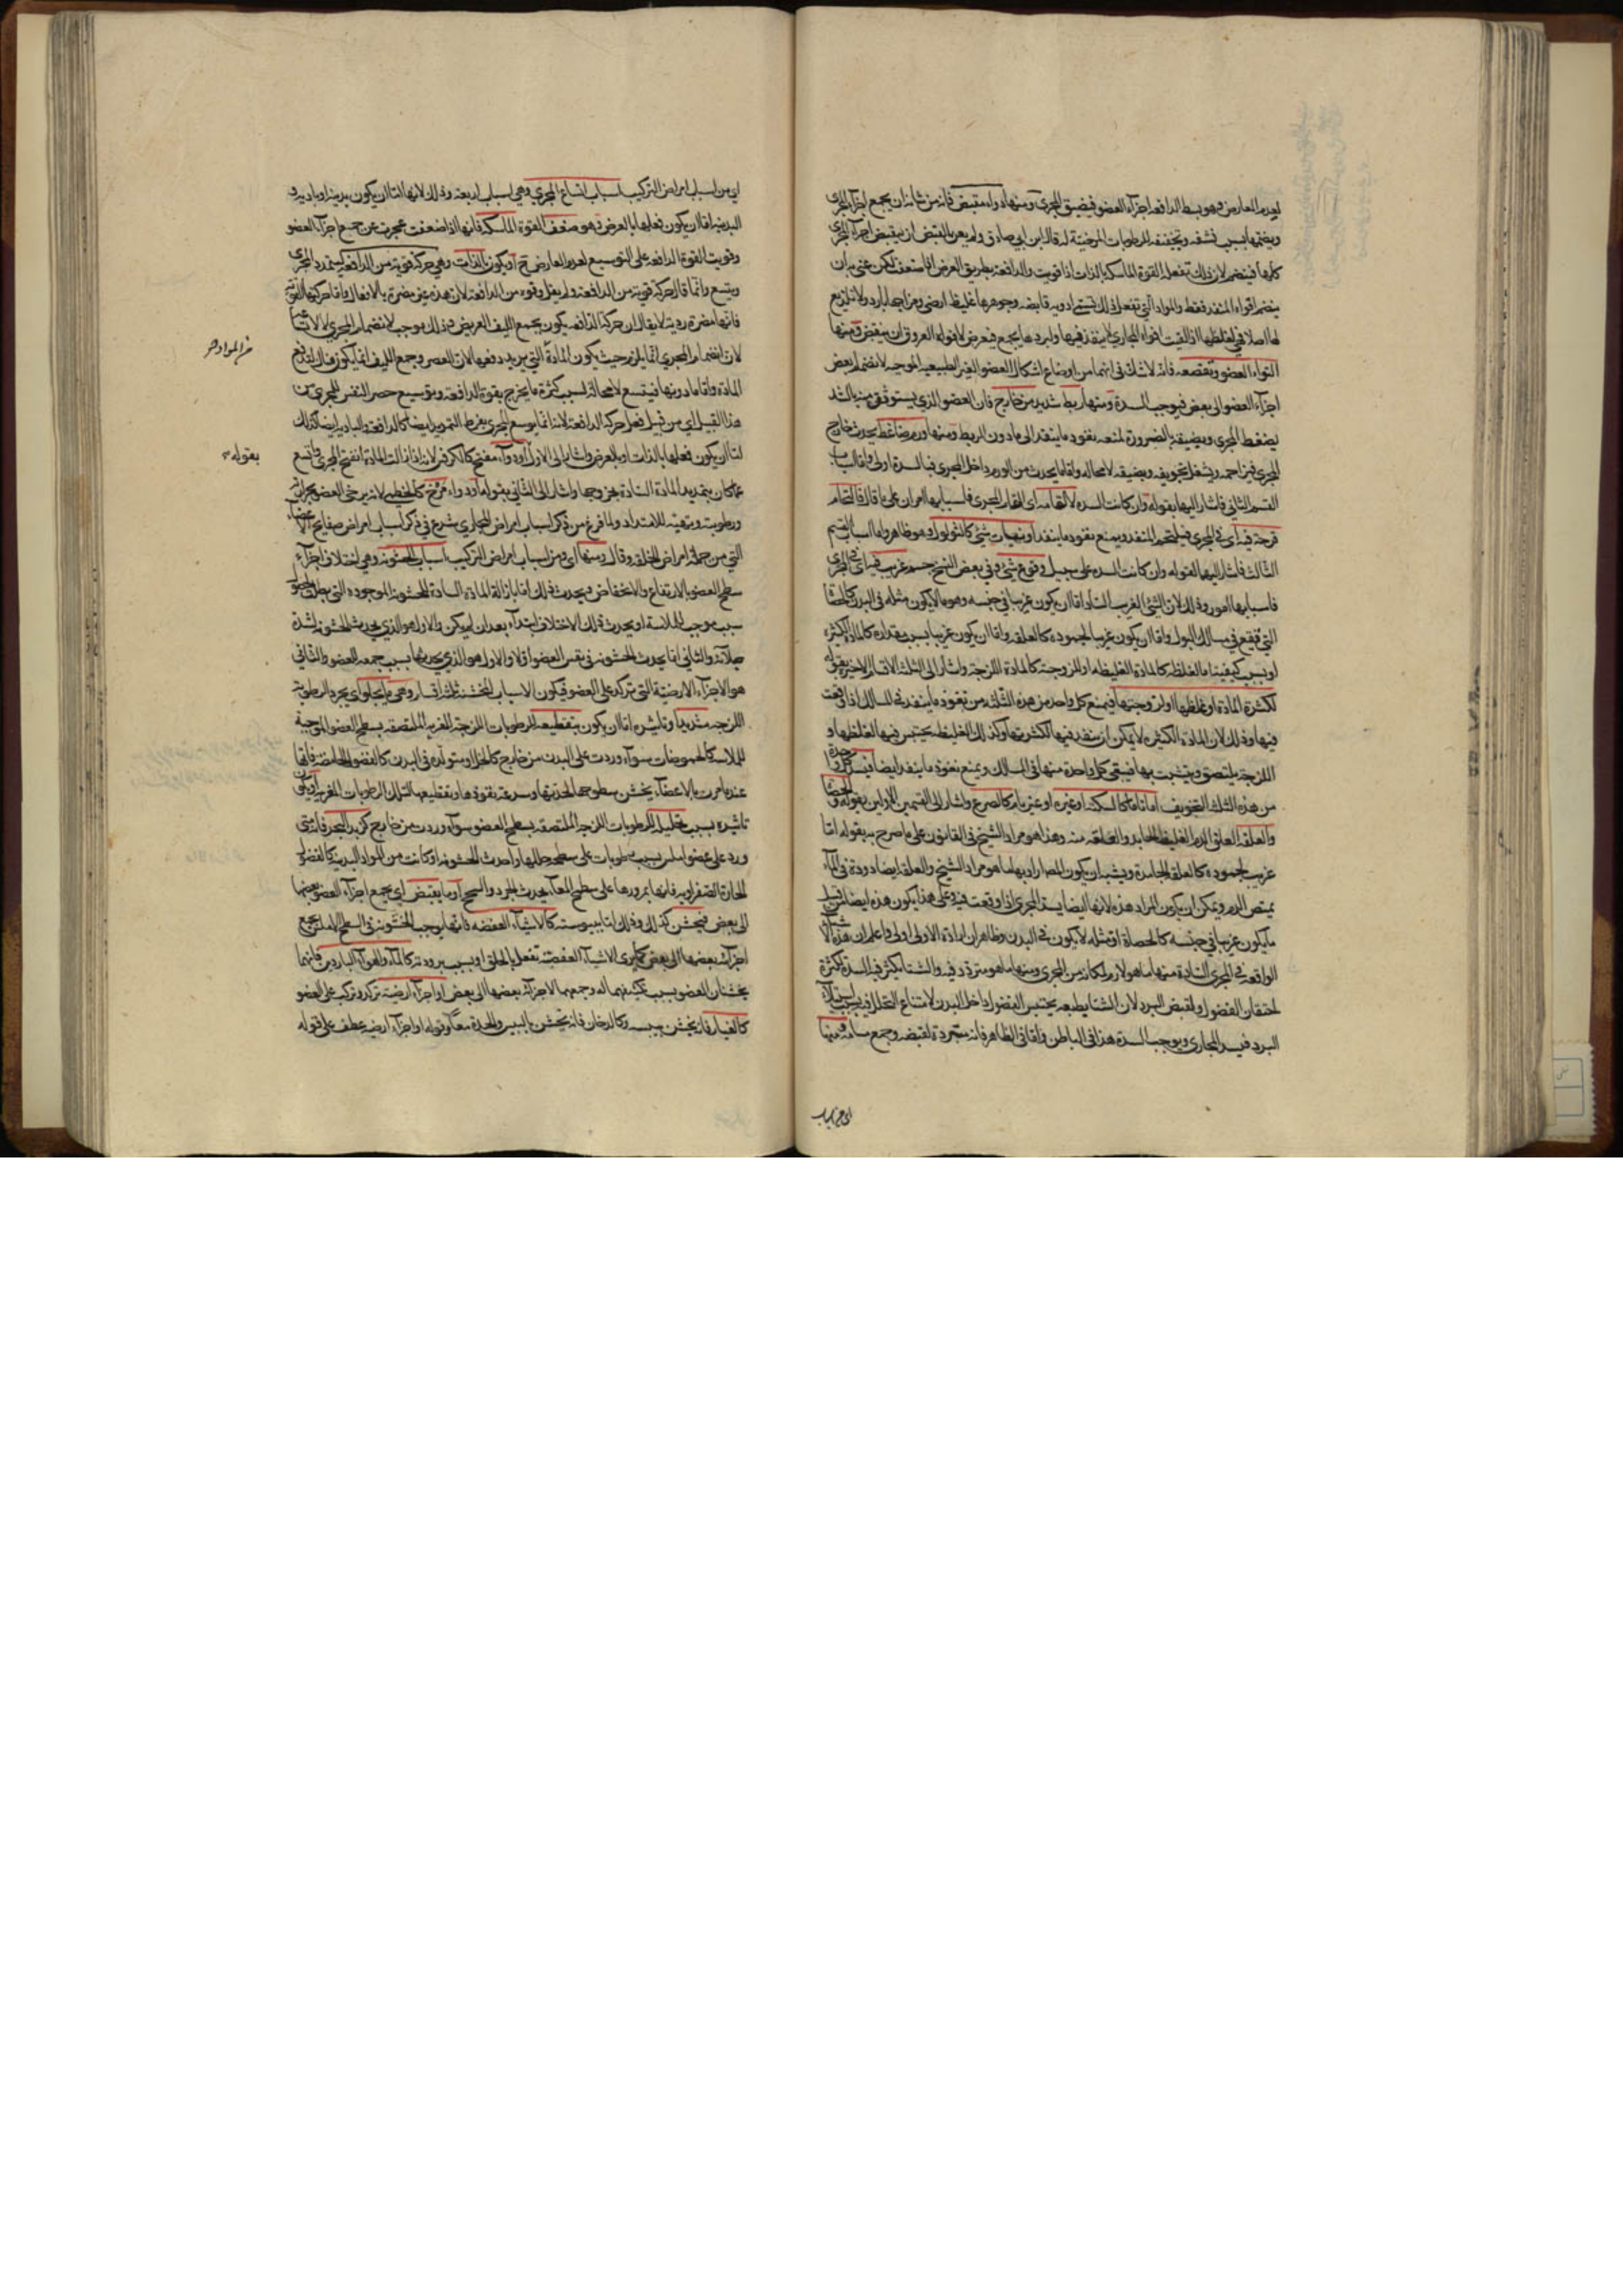 لعدم المعارض فهو بسط الدافعة اجزاء العضو فيضيق المجرى ومنها دواء مقبض فانه من شانه ان يجمع اجزاء المجرى
ويضمها بسبب نشفه وتجفيفه للرطوبات المرخية له قال ابن ابي صادق ولم يعن بالقبض ان يقبض اجزاء المجرى
كلها فينضم لان ذلك تفعله القوة الماسكة بالذات اذا قويت والدافعة بطريق العرض اذا ضعفت لكن عنى به ان
ينضم افواه المنفذ فقط والمواد التي تفعل ذلك تسمى ادوية قابضة وجوهرها غليظ ارضي ومزاجها بارد ولا تلذيع
لها اصلا فهي لغلظها اذا لقيت افواه المجاري لا ينفذ فيها ولبردها يجمع فيعرض لافواه العروق ان ينقبض ومنها
التواء العضو وتقصعه فانه لا شك في انهما من اوضاع اشكال العضو الغير الطبيعية الموجبة لانضمام بعض
اجزاء العضو الى بعض فيوجب السدة ومنها ربط شديد من خارج فان العضو الذي يستوثق منه بالشد
ينضغط المجرى ويضيقه بالضرورة لمنعه نفوذ ما ينفذ الى ما دون الربط ومنها ورم ضاغط يحدث خارج
المجرى فيزاحمه ويشغل تجويفه ويضيقه لا محالة واما ما يحدث من الورم داخل المجرى فبالسدة اولى واما اسباب
القسم الثاني فاشار اليها بقوله وان كانت السدة لالتحامه اى التحام المجرى فاسبابها امران على ما قال فالتحام
قرحة فيه اى في المجرى فيلتحم المنفذ ويمنع نفوذ ما ينفذ او نبات شئ كالثولول وهو ظاهر واما اسباب القسم
الثالث فاشار اليها بقوله وان كانت السدة على سبيل وقوع شئ وفي بعض النسخ جسم غريب فيه اى في المجرى
فاسبابها امور وذلك لان الشئ الغريب الساد اما ان يكون غريبا في جنسه وهو ما لا يكون مثله في البدن كالحصاة
التي تقع في مسالك البول واما ان يكون غريبا لجموده كالعلقة واما ان يكون غريبا بسبب مقداره كالمادة الكثيرة
او بسبب كيفيته اما لغلظه كالمادة الغليظة او للزوجته كالمادة اللزجة واشار الى الثلثة الاقسام الاخيرة بقوله
لكثرة المادة او غلظها او لزوجتها فيمنع كل واحد من هذه الثلثة من نفوذ ما ينفذ في المسالك اذا وقعت
فيها وذلك لان المادة الكثيرة لا يمكن ان ينفذ فيها لكثرتها وكذلك الغليظة يحتبس فيها لغلظها و
اللزجة يلتصق ويتشبث بها فيبقى كل واحدة منها في المسالك ويمنع نفوذ ما ينفذ ايضا فيسد كل واحدة
من هذه الثلث التجويف اما تاما كالسكتة او غيره او غير تام كالصرع واشار الى القسمين الاولين بقوله والحصاة
والعلقة العلق الدم الغليظ الجامد والعلقة منه وهذا هو مراد الشيخ في القانون على ما صرح به بقوله اما
غريب لجموده كالعلقة الجامدة ويشبه ان يكون المص اراد بها ما هو مراد الشيخ والعلقة ايضا دودة في الماء
يمتص الدم ويمكن ان يكون المراد هذه لانها ايضا يسد المجرى اذا وقعت فيه وعلى هذا يكون هذه ايضا من قبيل
ما يكون غريبا في جنسه كالحصاة اذ مثله لا يكون في البدن وظاهر ان ارادة الاولى اولى واعلم ان هذه الاشياء
الواقعة في المجرى السادة منها ما هو لازم لمكانه من المجرى ومنها ما هو متردد فيه والشتا يكثر فيه السدة لكثرة
احتقان الفضول ولقبض البرد لان الشتا بطبعه يحتبس الفضول داخل البدن لامتناع التحلل فيه بسبب استيلاء
البرد فيسد المجاري ويوجب السدة هذا في الباطن واما في الظاهر فانه متجرد لقبضه وجمع مسامه ومنها
اى من اسباب
اى من اسباب امراض التركيب اسباب اتساع المجرى وهي اسباب اربعة وذلك لانها اما ان يكون بدنية او بادية و
البدنية اما ان يكون فعلها بالعرض وهو ضعف القوة الماسكة فانها اذا ضعفت عجزت عن جمع اجزاء العضو
وقويت القوة الدافعة على التوسيع لعدم المعارض ح او يكون بالذات وهي حركة قوية من الدافعة ليتمدد المجرى
ويتسع وانما قال حركة قوية من الدافعة ولم يقل وقوة من الدافعة لان هذه غير مضرة بالافعال واما حركتها القوية
فانها مضرة ردية لا يقال ان حركة الدافعة يكون بجمع الليف العريض وذلك يوجب لانضمام المجرى لا لاتساعه
لان انضمام المجرى انما يلزم حيث يكون المادة التي يريد دفعها لان العصر وجمع الليف انما يكون هناك ليندفع
من المواد صح
المادة واما ما دونها فيتسع لا محالة لسبب كثرة ما يخرج بقوة الدافعة وتوسيع حصر النفس للمجرى من
هذا القبيل اى من قبيل فعل حركة الدافعة لانه انما يوسع المجرى بفرط التمديد ايضا كالدافعة والبادية ايضا كذلك
اما ان يكون فعلها بالذات او بالعرض واشار الى الاول او دواء مفتح كالكرفس لانه اذا زالت المادة انفتح المجرى واتسع
بقوله صح
عما كان بتمديد المادة السادة بخروجها واشار الى الثاني بقوله او دواء مرخ كالخطمي لانه يرخي العضو بحرارته
ورطوبته ويهيئه للامتداد ولما فرغ من ذكر اسباب امراض المجاري شرع في ذكر اسباب امراض صفايح الاعضاء
التي من جملة امراض الخلقة وقال ومنها اى ومن اسباب امراض التركيب اسباب الخشونة وهي اختلاف اجزاء
سطح العضو بالارتفاع والانخفاض ويحدث ذلك اما بازالة المادة السادة للخشونة الموجودة التي
سبب موجب للملاسة او يحدث ذلك الاختلاف ابتداء بعد ان لم يكن والاول هو الذي يحدث الخشونة لشدة
جلائه والثاني اما يحدث الخشونة في نفس العضو اولا والاول هو الذي يحدثها بسبب جمعه العضو والثاني
هو الاجزاء الارضية التي تركد على العضو فيكون الاسباب المخشنة ثلثة اقسام وهي ما يجلو اى يجرد الرطوبة
اللزجة شديدا وتاثيره اما ان يكون بتقطيعه للرطوبات اللزجة المغرية الملتصقة بسطح العضو الموجبة
للملاسة كالحموضات سواء وردت على البدن من خارج كالخل او متولدة في البدن كالفضول الحامضة فانها
عند ما مرت بالاعضاء يخشن سطوحها لحدتها وسرعة نفوذها وتقطيعها لتلك الرطوبات المغرية او يكون
تاثيره بسبب تحليل الرطوبات اللزجة الملتصقة بسطح العضو سواء وردت من خارج كزبد البحر فانه متى
ورد على عضو املس بسبب رطوبات على سطحه حللها واحدث الخشونة او كانت من المواد البدنية كالفضول
الحارة الصفراوية فانها بمرورها على سطح المعاء يحدث الجرد والسحج او ما يقبض اى يجمع اجزاء العضو بعضها
الى بعض فيخشن كذلك وذلك اما بيبوسته كالاشياء العفصة فانها يوجب الخشونة في السطح الاملس بجمع
اجزائه بعضها الى بعض كما يرى الاشياء العفصة تفعل بالحلق او بسبب برودته كالماء والهواء الباردين فانهما
يخشنان العضو بسبب تكثيفهما له وجمعهما لاجزائه بعضها الى بعض او اجزاء ارضية تركد وتركب على العضو
كالغبار فانه يخشن بيبسه وكالدخان فانه يخشن باليبس والحدة معا وقوله او اجزاء ارضية عطف على قوله